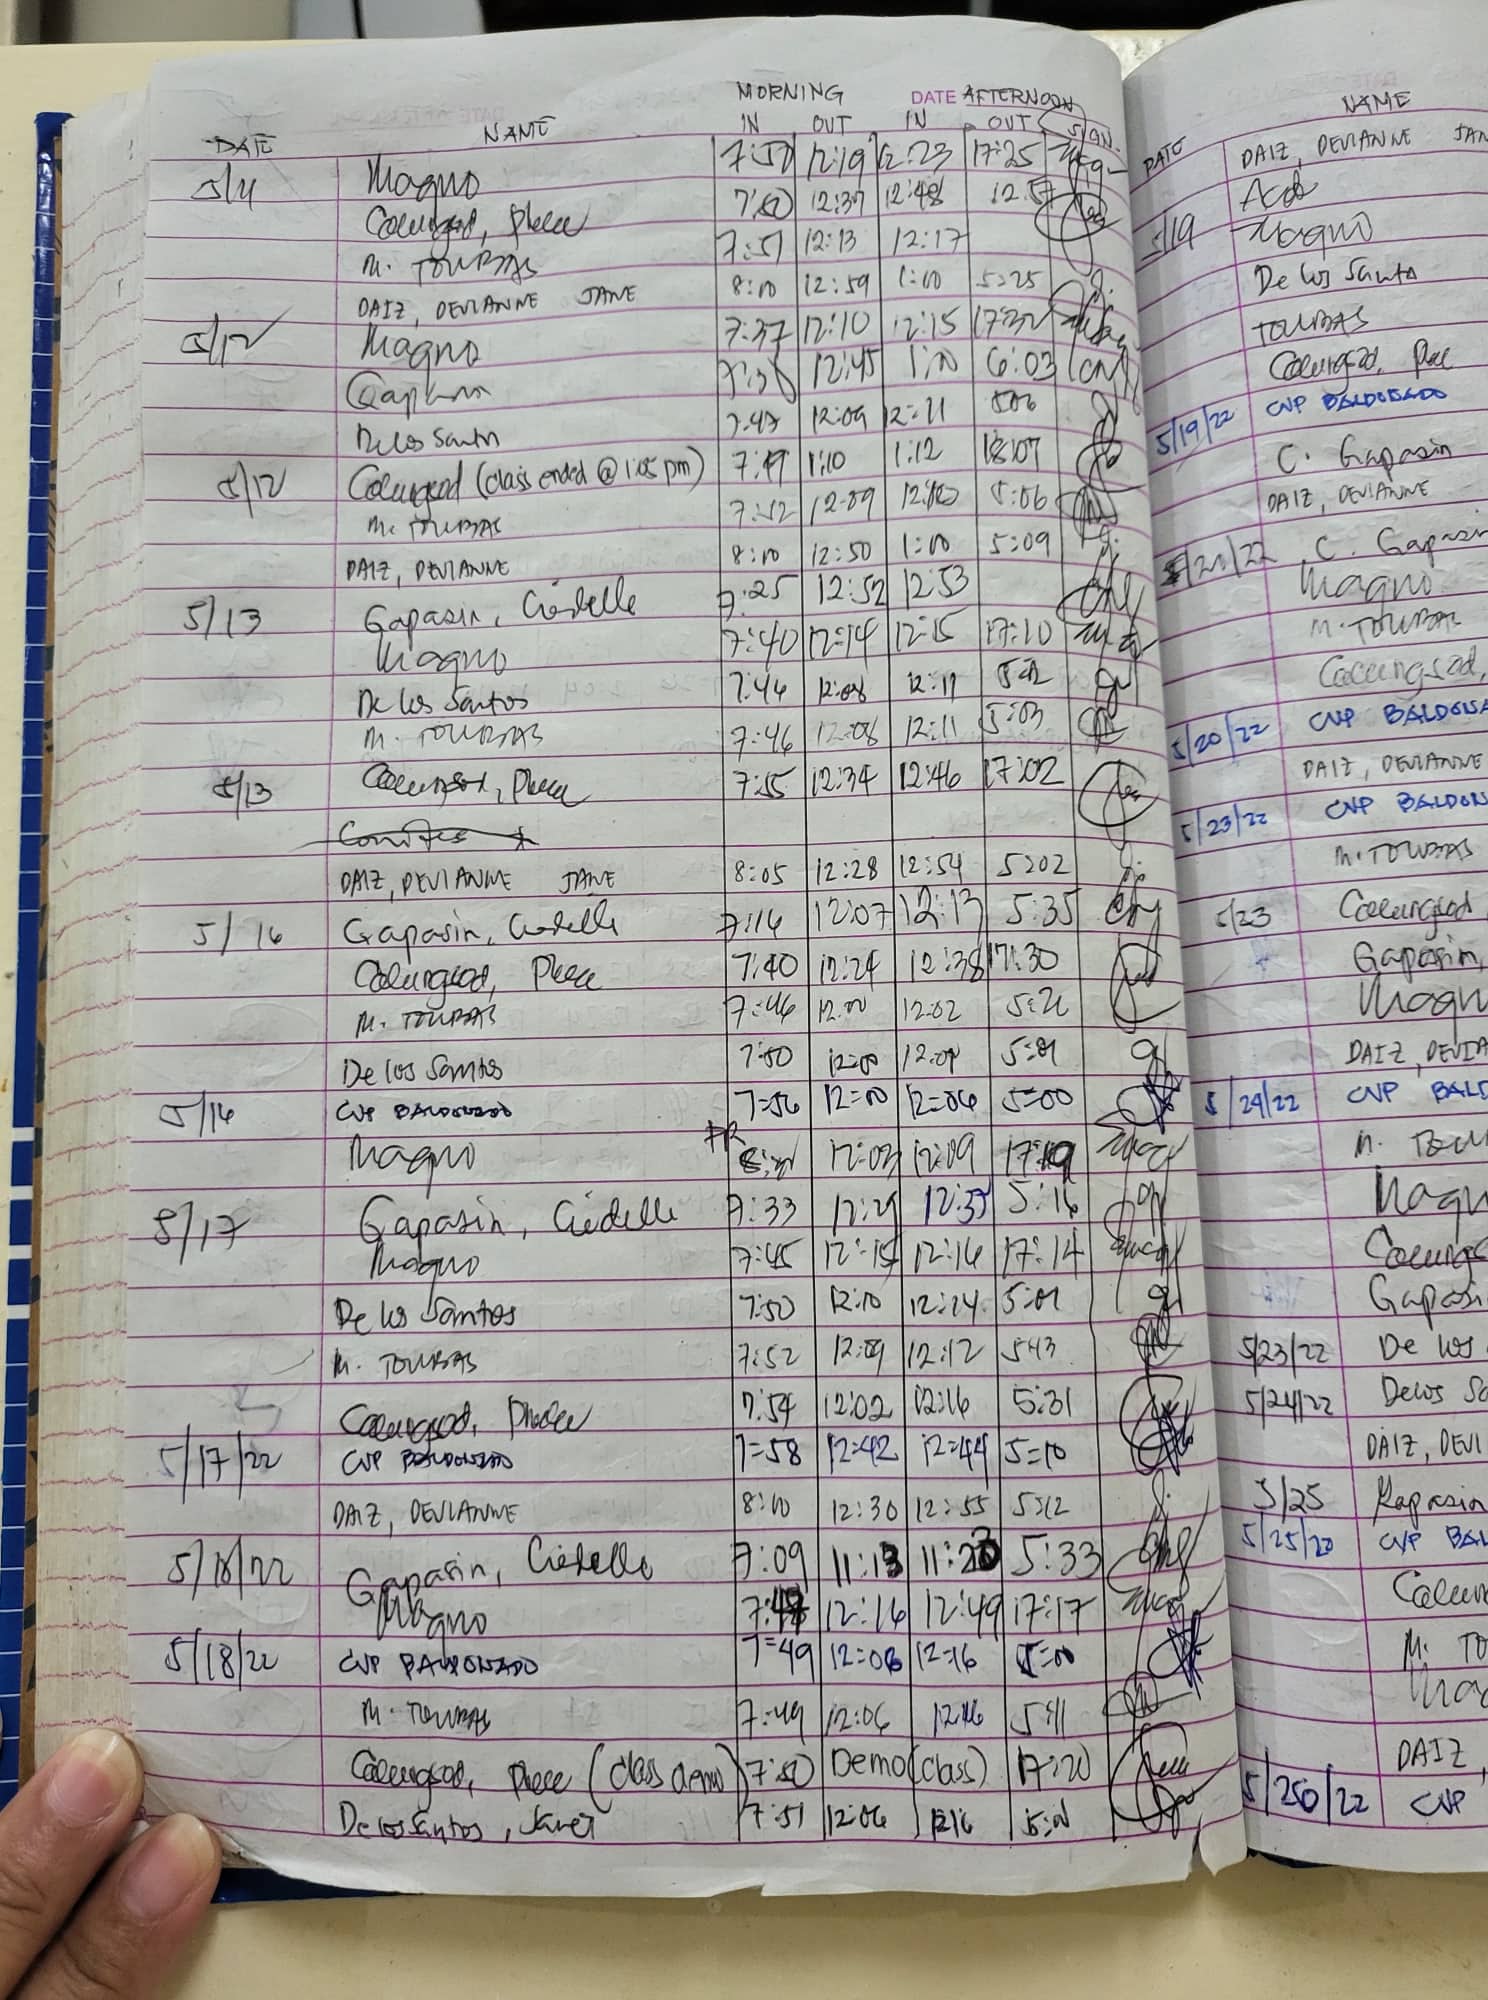 MORNING DATE AFTERNOON
DATE NAME IN OUT IN OUT SIGN.
5/11 Magno 7:50 12:19 12:23 17:25
Calungsod, 7:50 12:37 12:48 12:57
M. TOLIBAS 7:51 12:13 12:17
DAIZ, DEVIANNE JANE 8:00 12:59 1:00 5:25
5/12 Magno 7:37 12:10 12:15 17:32
12:45 1:10 6:03
De los Santos 7:47 12:09 12:11 5:06
5/12 Calungsod (class ended @ 1:05 pm) 7:49 1:10 1:12 18:07
M. TOLIBAS 7:52 12:09 12:10 5:06
DAIZ, DEVIANNE 8:00 12:50 1:00 5:09
5/13 Gapasin, Ciedelle 7:25 12:52 12:53
Magno 7:40 12:14 12:15 17:10
De los Santos 7:44 12:08 12:11
M. TOLIBAS 7:46 12:08 12:11 5:03
5/13 Calungsod, 7:55 12:34 12:46 17:02
DAIZ, DEVIANNE JANE 8:05 12:28 12:54 5:02
5/16 Gapasin, Ciedelle 7:16 12:07 12:13 5:35
Calungsod, 7:40 12:24 12:38 17:30
M. TOLIBAS 7:46 12:00 12:02
De los Santos 7:50 12:00 12:01 5:01
5/16 CVP BALDONADO 7:56 12:00 12:06 5:00
Magno 12:03 12:09 17:19
5/17 Gapasin, Ciedelle 7:33 12:29 12:35 5:16
Magno 7:45 12:15 12:16 17:14
De los Santos 7:50 12:10 12:14 5:01
M. TOLIBAS 7:52 12:09 12:12 5:43
Calungsod, 7:54 12:02 12:16 5:31
5/17/22 CVP BALDONADO 7:58 12:42 12:44 5:10
DAIZ, DEVIANNE 8:00 12:30 12:55 5:12
5/18/22 Gapasin, Ciedelle 7:09 11:13 11:23 5:33
Magno 7:47 12:16 12:49 17:17
5/18/22 CVP BALDONADO 7:49 12:06 12:16 5:00
M. TOLIBAS 7:49 12:06 12:16 5:11
Calungsod, (class demo) 7:50 Demo (class) 17:20
De los Santos, Janet 7:51 12:06 12:16
DATE NAME
DAIZ, DEVIANNE JAN
5/19 Magno
De los Santo
TOLIBAS
Calungsod,
5/19/22 CVP BALDONADO
C. Gapasin
DAIZ, DEVIANNE
5/20/22 C. Gapasin
Magno
M. TOLIBAS
Calungsod,
5/20/22 CVP BALDONA
DAIZ, DEVIANNE
5/23/22 CVP BALDON
M. TOLIBAS
5/23 Calungsod
Gapasin,
Magn
DAIZ, DEVIA
5/24/22 CVP BALD
M. TOLI
Magn
Calungs
Gapasi
5/23/22 De los
5/24/22 De los Sa
DAIZ, DEVI
5/25 Gapasin
5/25/20 CVP BAL
Calun
M. TO
Mag
DAIZ,
5/250/22 CVP